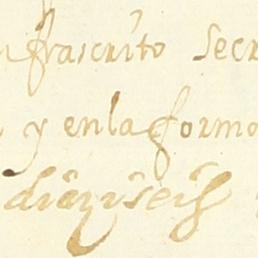 nfrascrito Secr
y enla forma
diezyseis